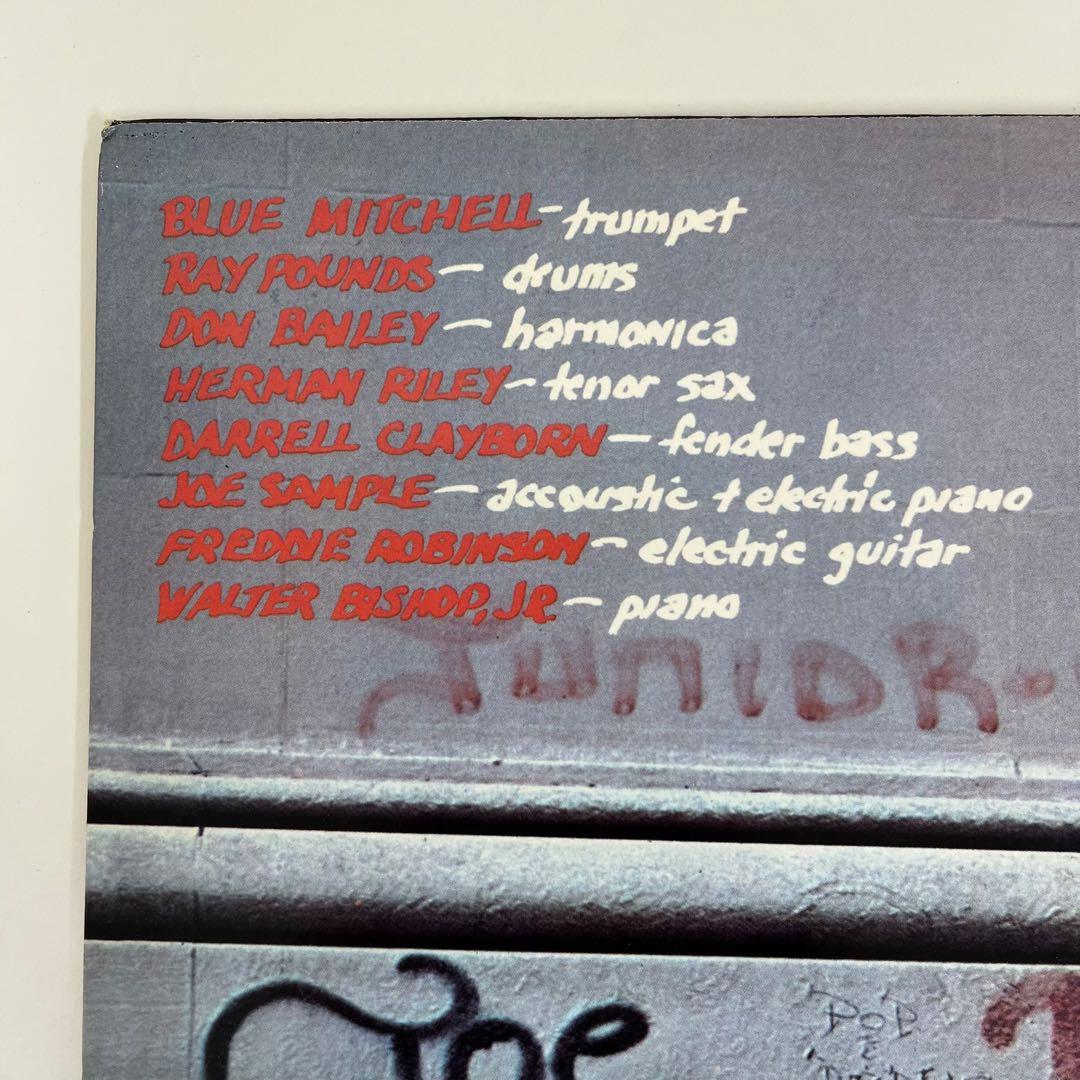 BLUE MITCHELL - trumpet
RAY POUNDS - drums
DON BAILEY - harmonica
HERMAN RILEY - tenor sax
DARRELL CLAYBORN - fender bass
JOE SAMPLE - accoustic + electric piano
FREDDIE ROBINSON - electric guitar
WALTER BISHOP, JR. - piano
JUNIOR-
Joe